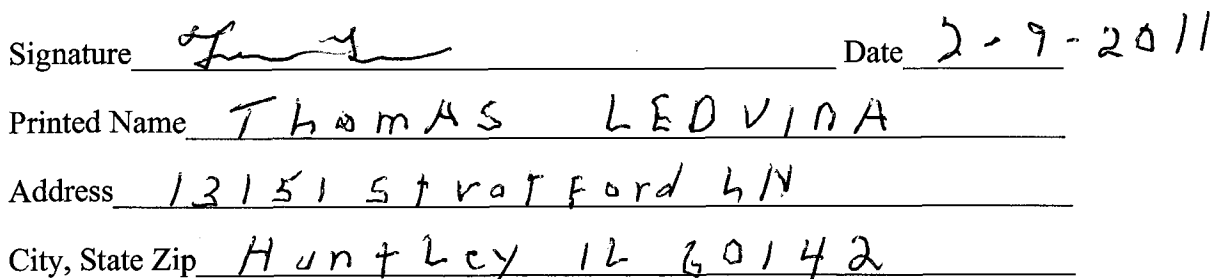 Signature Date 2-9-2011
Printed Name ThomAS LEDVINA
Address 13151 StratFord LN
City, State Zip HuntLey IL 60142